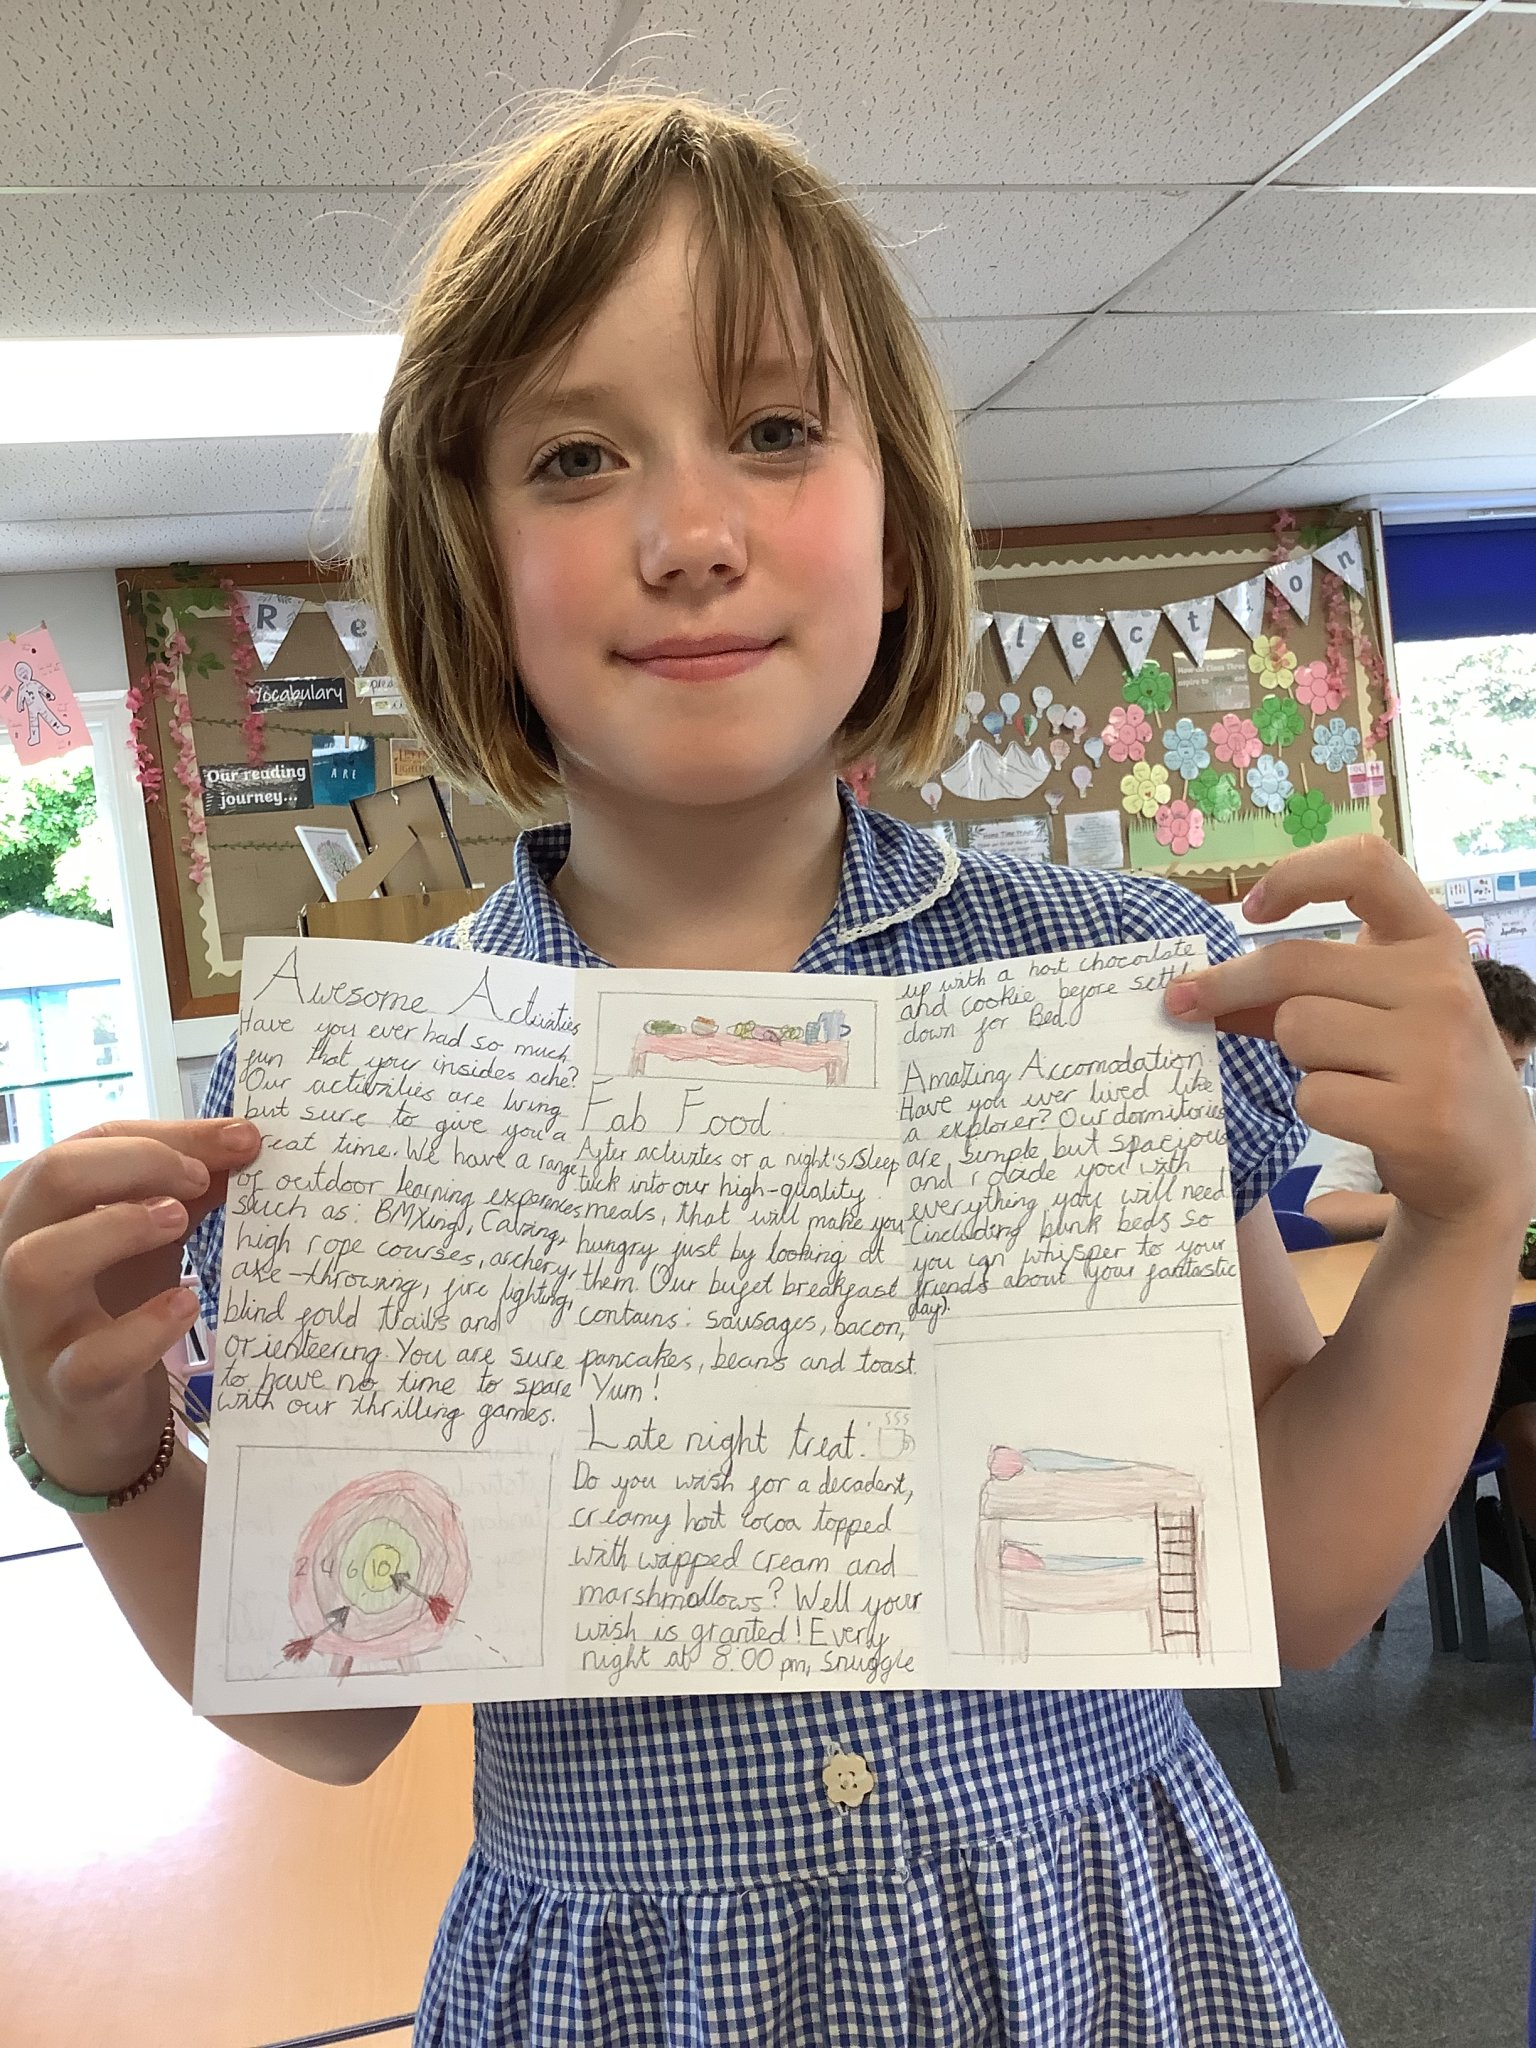 Re
lection
Vocabulary
Our reading
journey...
ARE
Awesome Activities
Have you ever had so much
fun that your insides ache?
Our activities are tiring
but sure to give you a
reat time. We have a range
of outdoor learning experiences
such as: BMXing, Caving,
high rope courses, archery,
axe-throwing, fire lighting,
blind foild trails and
orienteering. You are sure
to have no time to spare
with our thrilling games.
2 4 6 10
Fab Food
After activites or a night's sleep
tuck into our high-quality
meals, that will make you
hungry just by looking at
them. Our bufet breakfast
contains: sausages, bacon,
pancakes, beans and toast.
Yum!
Late night treat.
Do you wish for a decadent,
creamy hot cocoa topped
with wipped cream and
marshmallows? Well your
wish is granted! Every
night at 8:00 pm, snuggle
up with a hot chocolate
and cookie before settl
down for Bed.
Amazing Accomodation
Have you ever lived like
a explorer? Our dormitories
are simple but spacious
and you with
everything you will need
(including bunk beds so
you can whisper to your
friends about your fantastic
day).